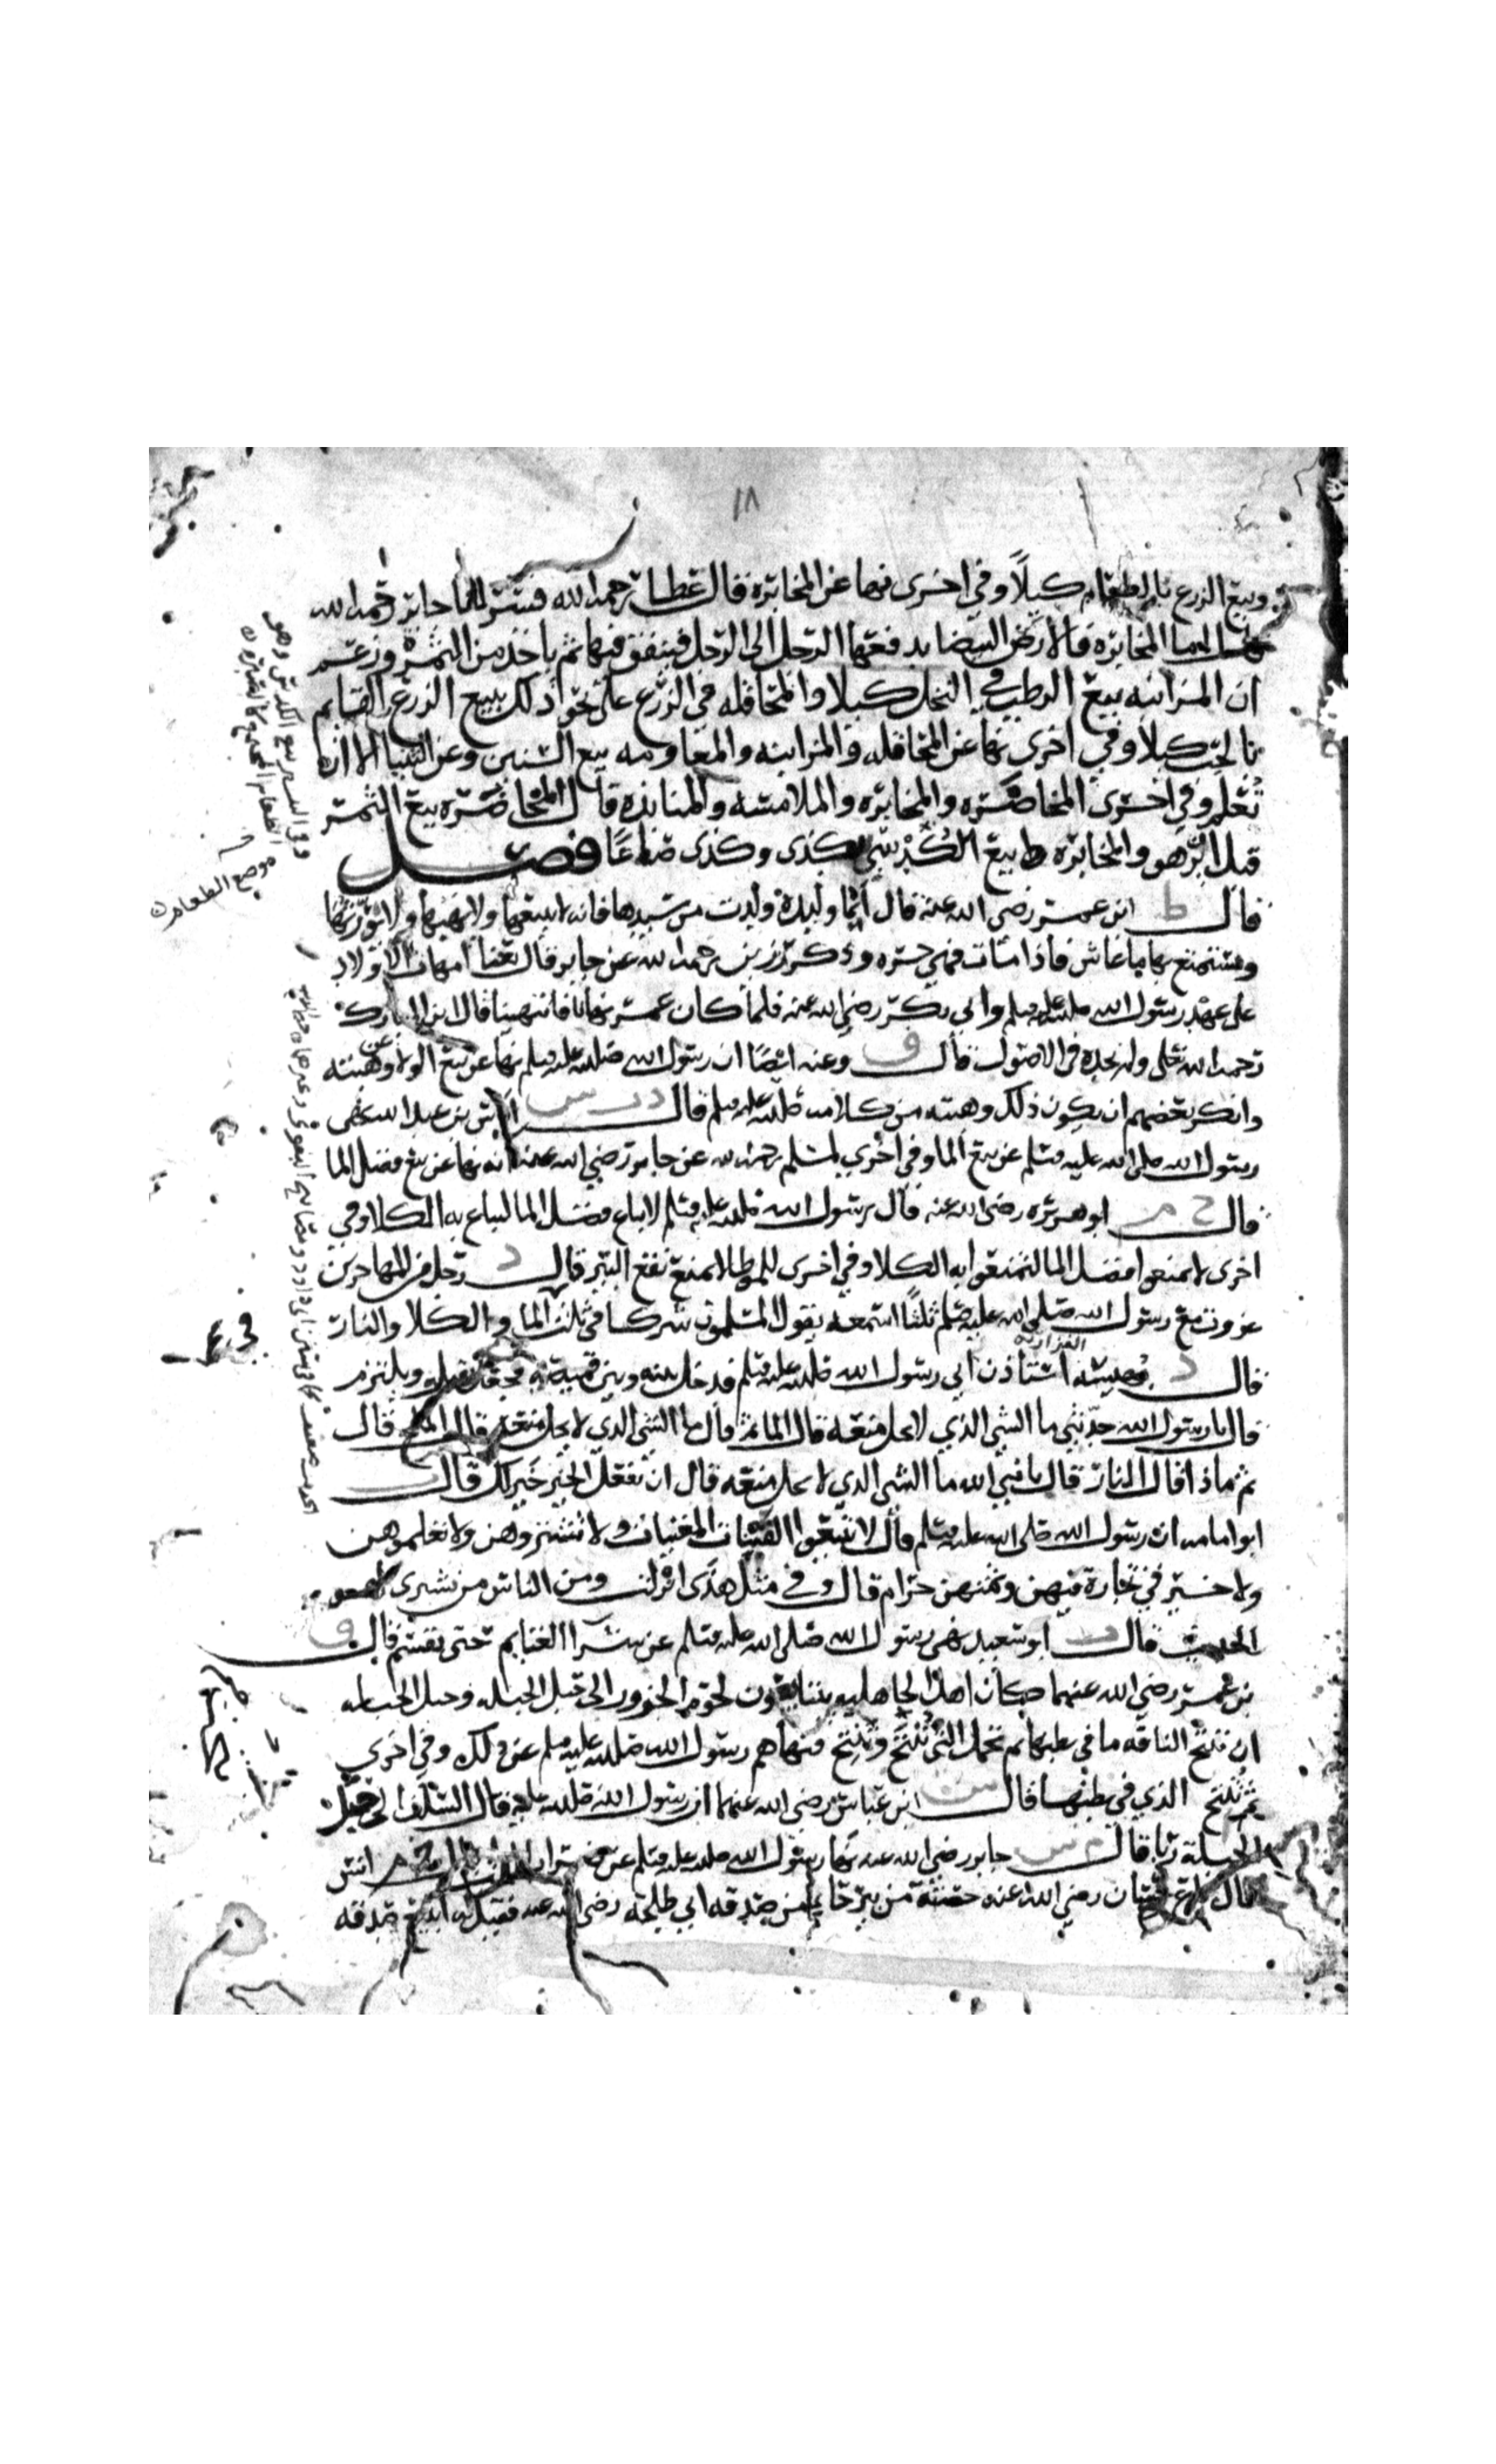 ١٨
وبيع الزرع بالطعام كيلًا وفي اخرى نها عن المخابرة فقال عطا رحمه الله فسر لنا جابر رحمه الله
اما المخابره فالارض البيضا يدفعها الرجل الى الرجل فينفق فيها ثم ياخذ من الثمر وزعم
ان المزابنه بيع الرطب في النخل كيلا والمحاقله في الزرع على نحو ذلك بيع الزرع القايم
بالحب كيلا وفي اخرى نها عن المحاقله والمزابنه والمعاومه بيع السنين وعن الثنيا الا ان
تعلم وفي اخرى المخاضره والمخابره والملامسه والمنابذه قال المخاضره بيع الثمر
قبل الزهو والمخابره بيع الكدس بكذى وكذى صاعًا فصل
قال ط ابن عمر رضي الله عنه قال ايما وليدة ولدت من سيدها فانه لا يبيعها ولا يهبها ولا يورثها
ويستمتع بها ما عاش فاذا مات فهي حره وذكر رزين رحمه الله عن جابر قال بعنا امهات الاولاد
على عهد رسول الله صلى الله عليه وسلم وابي بكر رضي الله عنه فلما كان عمر نهانا فانتهينا قال ابن المبارك
رحمه الله تعلى ولم نجده في الاصول قال ق وعنه ايضا ان رسول الله صلى الله عليه وسلم نها عن بيع الولا وعن هبته
وانكر بعضهم ان يكون ذلك وهبته من كلامه صلى الله عليه وسلم قال د ر س اياس بن عبد الله نهى
رسول الله صلى الله عليه وسلم عن بيع الما وفي اخرى لمسلم رحمه الله عن جابر رضي الله عنه انه نها عن بيع فضل الما
قال خ م ابو هريره رضي الله عنه قال رسول الله صلى الله عليه وسلم لا يباع فضل الما ليباع به الكلا وفي
اخرى لا تمنعوا فضل الما لتمنعوا به الكلا وفي اخرى للموطا لا يمنع نفع البير قال د رجل من المهاجرين
غزوت مع رسول الله صلى الله عليه وسلم ثلثًا اسمعه يقول المسلمون شركا في ثلث الما والكلا والنار
قال د بهيسه الفزاريه استاذن ابي رسول الله صلى الله عليه وسلم فدخل بينه وبين قميصه فجعل يقبل ويلتزم
قال يا رسول الله حدثني ما الشي الذي لا يحل منعه قال الما ثم قال ما الشي الذي لا يحل منعه قال الملح قال
ثم ماذا قال النار قال يا نبي الله ما الشي الذي لا يحل منعه قال ان تفعل الخير خير لك قال
ابو امامه ان رسول الله صلى الله عليه وسلم قال لا تبيعوا القينات المغنيات ولا تشتروهن ولا تعلموهن
ولا خير في تجارة فيهن وثمنهن حرام قال وفي مثل هذى انزلت ومن الناس من يشري لهو
الحديث قال ت ابو سعيد نهى رسول الله صلى الله عليه وسلم عن شرا الغنايم حتى تقسم قال ق
بن عمر رضي الله عنهما كان اهل الجاهليه يتبايعون لحوم الجزور الى حبل الحبله وحبل الحبله
ان تنتج الناقه ما في بطنها ثم تحمل التي نتجت فنهاهم رسول الله صلى الله عليه وسلم عن ذلك وفي اخرى
ثم تنتج الذي في بطنها قال س ابن عباس رضي الله عنهما ان رسول الله صلى الله عليه قال السلف الى حبل
الحبلة ربا قال م س جابر رضي الله عنه نها رسول الله صلى الله عليه وسلم عن ضراب انس
قال باع حسان رضي الله عنه حصته من بيرحا من صدقه ابي طلحه رضي الله عنه فقيل له اتبيع صدقه
موضع الطعام